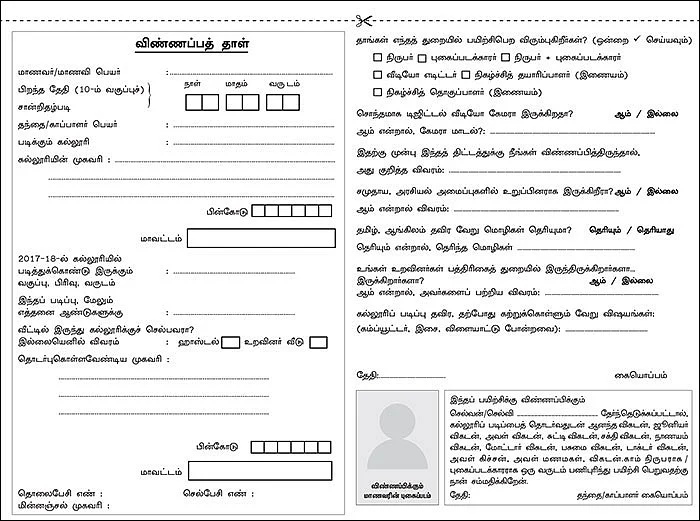 விண்ணப்பத் தாள்
மாணவர்/மாணவி பெயர் :
நாள் மாதம் வருடம்
பிறந்த தேதி (10-ம் வகுப்புச்)
சான்றிதழ்படி
தந்தை/காப்பாளர் பெயர் :
படிக்கும் கல்லூரி :
கல்லூரியின் முகவரி :
பின்கோடு
மாவட்டம்
2017-18-ல் கல்லூரியில்
படித்துக்கொண்டு இருக்கும் :
வகுப்பு, பிரிவு, வருடம்
இந்தப் படிப்பு, மேலும்
எத்தனை ஆண்டுகளுக்கு :
வீட்டில் இருந்து கல்லூரிக்குச் செல்பவரா?
இல்லையெனில் விவரம் : ஹாஸ்டல் உறவினர் வீடு
தொடர்புகொள்ளவேண்டிய முகவரி :
பின்கோடு
மாவட்டம்
தொலைபேசி எண் : செல்பேசி எண் :
மின்னஞ்சல் முகவரி :
தாங்கள் எந்தத் துறையில் பயிற்சிபெற விரும்புகிறீர்கள்? (ஒன்றை ✓ செய்யவும்)
நிருபர் புகைப்படக்காரர் நிருபர் + புகைப்படக்காரர்
வீடியோ எடிட்டர் நிகழ்ச்சித் தயாரிப்பாளர் (இணையம்)
நிகழ்ச்சித் தொகுப்பாளர் (இணையம்)
சொந்தமாக டிஜிட்டல் வீடியோ கேமரா இருக்கிறதா? ஆம் / இல்லை
ஆம் என்றால், கேமரா மாடல்?:
இதற்கு முன்பு இந்தத் திட்டத்துக்கு நீங்கள் விண்ணப்பித்திருந்தால்,
அது குறித்த விவரம்:
சமுதாய, அரசியல் அமைப்புகளில் உறுப்பினராக இருக்கிறீரா? ஆம் / இல்லை
ஆம் என்றால் விவரம்:
தமிழ், ஆங்கிலம் தவிர வேறு மொழிகள் தெரியுமா? தெரியும் / தெரியாது
தெரியும் என்றால், தெரிந்த மொழிகள்
உங்கள் உறவினர்கள் பத்திரிகைத் துறையில் இருந்திருக்கிறார்களா...
இருக்கிறார்களா? ஆம் / இல்லை
ஆம் என்றால், அவர்களைப் பற்றிய விவரம் :
கல்லூரிப் படிப்பு தவிர, தற்போது கற்றுக்கொள்ளும் வேறு விஷயங்கள்:
(கம்ப்யூட்டர், இசை, விளையாட்டு போன்றவை):
தேதி: கையொப்பம்
விண்ணப்பிக்கும்
மாணவரின் புகைப்படம்
இந்தப் பயிற்சிக்கு விண்ணப்பிக்கும்
செல்வன்/செல்வி தேர்ந்தெடுக்கப்பட்டால்,
கல்லூரிப் படிப்பைத் தொடர்வதுடன் ஆனந்த விகடன், ஜூனியர்
விகடன், அவள் விகடன், சுட்டி விகடன், சக்தி விகடன், நாணயம்
விகடன், மோட்டார் விகடன், பசுமை விகடன், டாக்டர் விகடன்,
அவள் கிச்சன், அவள் மணமகள், விகடன்.காம் நிருபராக /
புகைப்படக்காரராக ஒரு வருடம் பணிபுரிந்து பயிற்சி பெறுவதற்கு
நான் சம்மதிக்கிறேன்.
தேதி: தந்தை/காப்பாளர் கையொப்பம்